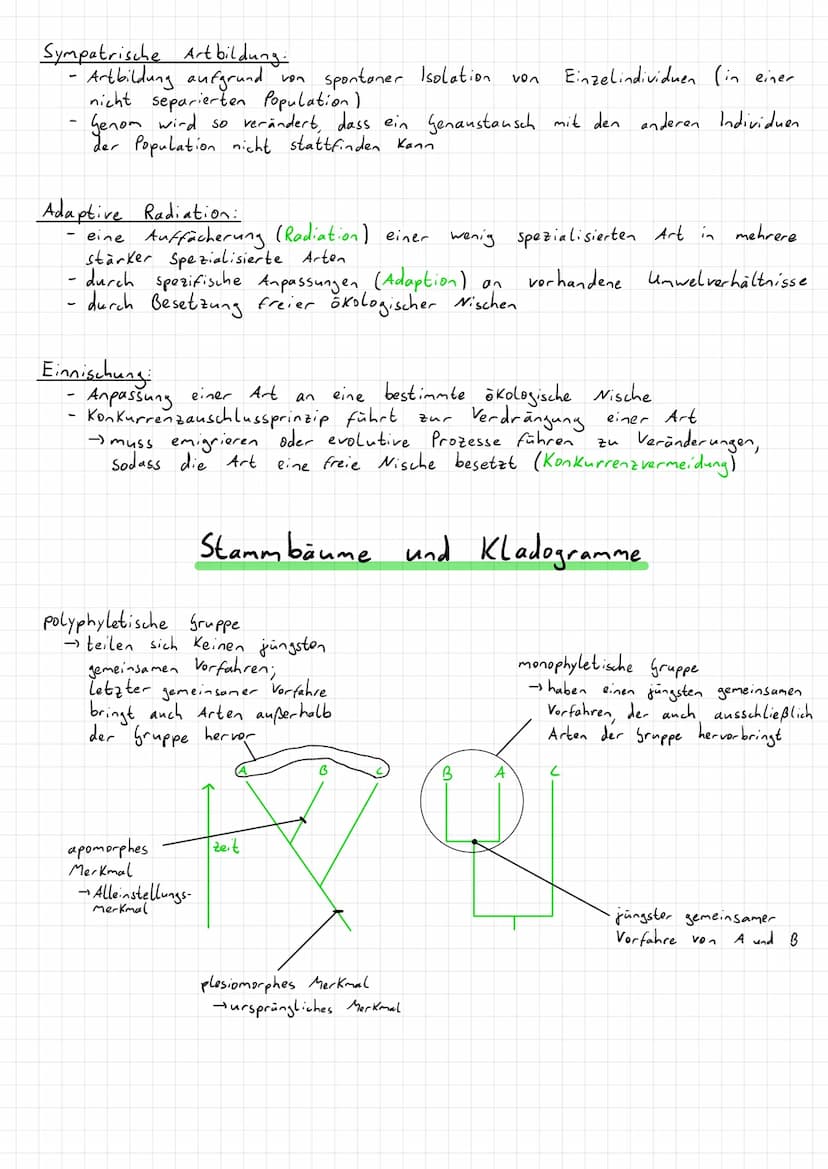 Sympatrische Artbildung:
- Artbildung aufgrund von spontaner Isolation von Einzelindividuen (in einer
nicht separierten Population)
- Genom wird so verändert, dass ein Genaustausch mit den anderen Individuen
der Population nicht stattfinden kann
Adaptive Radiation:
- eine Auffächerung (Radiation) einer wenig spezialisierten Art in mehrere
stärker spezialisierte Arten
- durch spezifische Anpassungen (Adaption) an vorhandene Umwelverhältnisse
- durch Besetzung freier ökologischer Nischen
Einnischung:
- Anpassung einer Art an eine bestimmte ökologische Nische
- Konkurrenzauschlussprinzip führt zur Verdrängung einer Art
→ muss emigrieren oder evolutive Prozesse führen zu Veränderungen,
sodass die Art eine freie Nische besetzt (Konkurrenzvermeidung)
Stammbäume und Kladogramme
polyphyletische Gruppe
→ teilen sich keinen jüngsten
gemeinsamen Vorfahren;
letzter gemeinsamer Vorfahre
bringt auch Arten außerhalb
der Gruppe hervor
monophyletische Gruppe
→ haben einen jüngsten gemeinsamen
Vorfahren, der auch ausschließlich
Arten der Gruppe hervorbringt
A B C
B A C
zeit
apomorphes
Merkmal
→ Alleinstellungs-
merkmal
jüngster gemeinsamer
Vorfahre von A und B
plesiomorphes Merkmal
→ ursprüngliches Merkmal